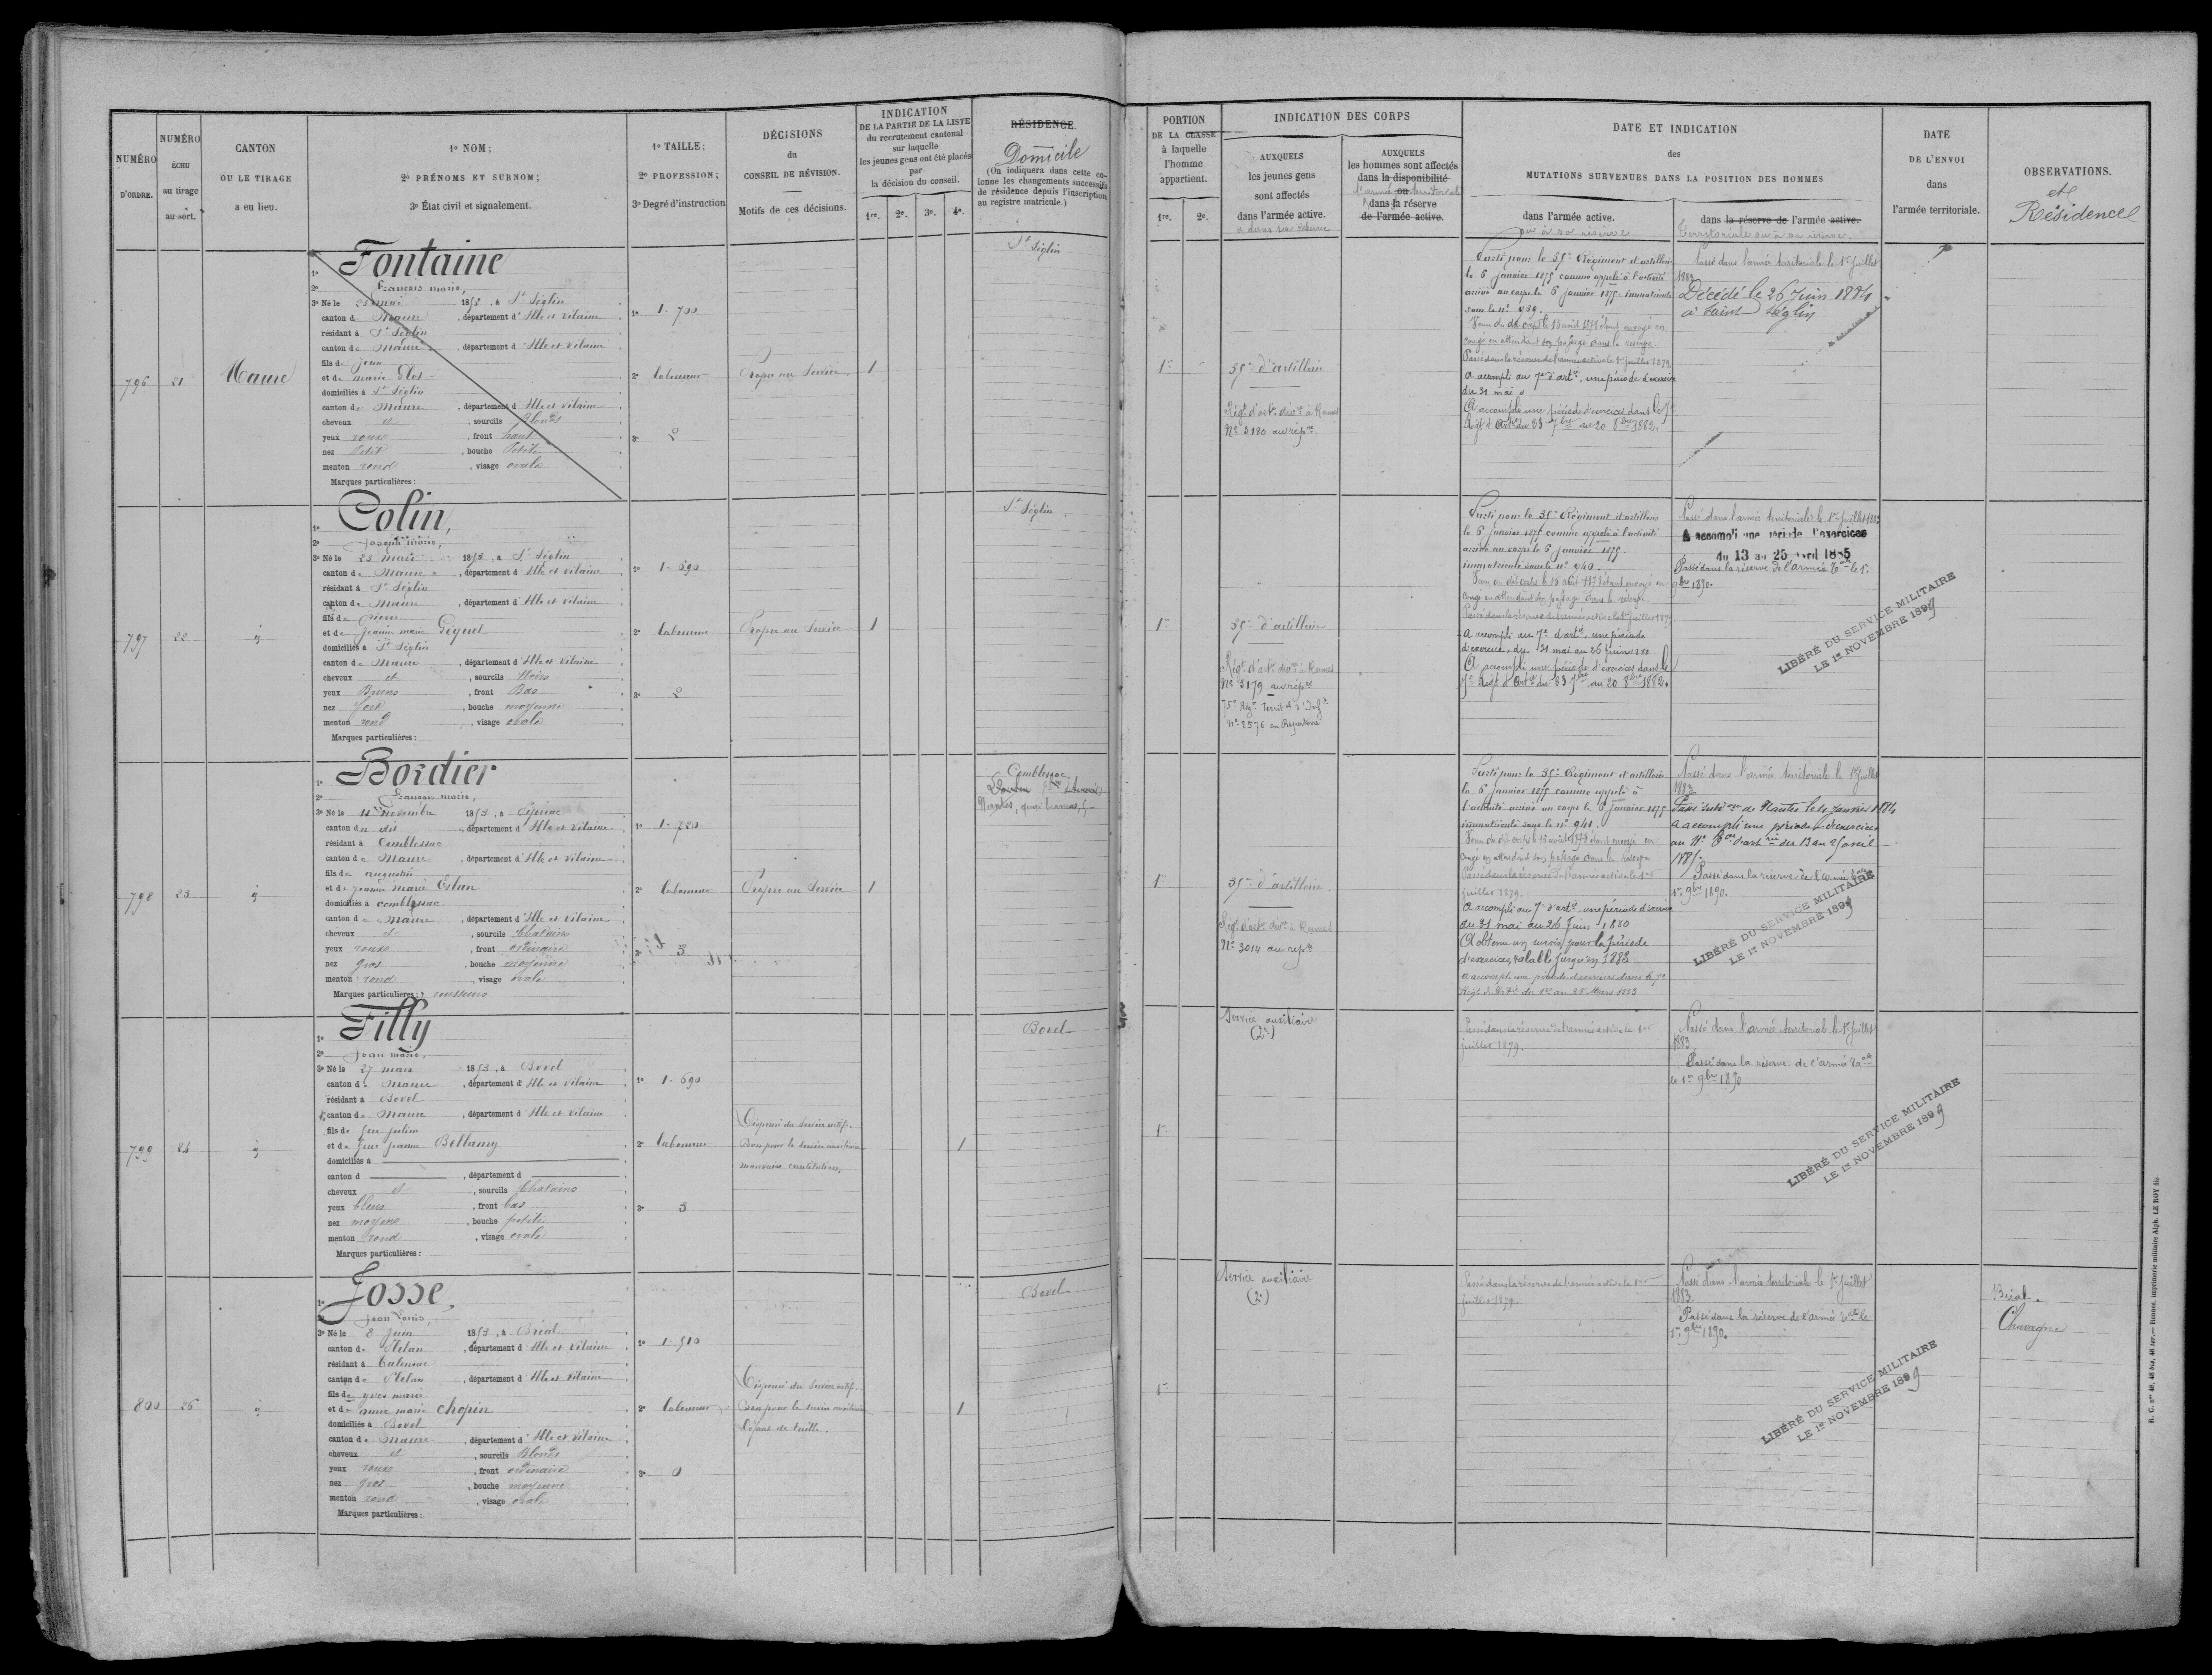 NUMÉRO D'ORDRE.
NUMÉRO ÉCHU au tirage au sort.
CANTON OU LE TIRAGE a eu lieu.
1º NOM;
2º PRÉNOMS ET SURNOM;
3º État civil et signalement.
1º TAILLE;
2º PROFESSION;
3º Degré d'instruction
DÉCISIONS
du
CONSEIL DE RÉVISION.
Motifs de ces décisions.
INDICATION
DE LA PARTIE DE LA LISTE
du recrutement cantonal
sur laquelle
les jeunes gens ont été placés
par
la décision du conseil.
1re. 2e. 3e. 4e.
RÉSIDENCE.
Domicile
(On indiquera dans cette co-
lonne les changements successifs
de résidence depuis l'inscription
au registre matricule.)
PORTION
DE LA CLASSE
à laquelle
l'homme
appartient.
1re. 2e.
INDICATION DES CORPS
AUXQUELS
les jeunes gens
sont affectés
dans l'armée active.
AUXQUELS
les hommes sont affectés
dans la disponibilité
ou
dans la réserve
de l'armée active.
DATE ET INDICATION
des
MUTATIONS SURVENUES DANS LA POSITION DES HOMMES
dans l'armée active.
ou à sa réserve
dans la réserve de l'armée active.
territoriale ou à sa réserve.
DATE
DE L'ENVOI
dans
l'armée territoriale.
OBSERVATIONS.
et
Résidence
796 21 Maure
1º Fontaine
2º François marie,
3º Né le 25 mai 1853, à St Séglin
canton de Maure, département d'Ille et Vilaine
résidant à St Séglin
canton de Maure, département d'Ille et Vilaine
fils de Jean
et de marie Glet
domiciliés à St Séglin
canton de Maure, département d'Ille et Vilaine
cheveux et, sourcils Blonds
yeux roux, front haut
nez Petit, bouche Petite
menton rond, visage ovale
Marques particulières :
1º 1.700
2º laboureur
3º 2
Propre au Service
1
St Séglin
1re
35e d'artillerie
Régt d'artie divre à Rennes
Nº 3180 au répre
Parti pour le 35e Régiment d'artillerie
le 6 janvier 1875 comme appelé à l'activité
arrivé au corps le 6 janvier 1875. immatriculé
sous le nº 939.
congé en attendant son passage dans la réserve
Passé dans la réserve de l'armée active le 1er juillet 1879.
A accompli au 7e d'artie, une période d'exercice
du 31 mai
A accompli une période d'exercices dans le 7e
Régt d'Artie du 23 7bre au 20 8bre 1882.
Passé dans l'armée territoriale le 1er Juillet
1883
Décédé le 26 Juin 1884
à Saint Séglin
797 22 id
1º Colin,
2º Joseph marie,
3º Né le 25 mars 1853, à St Séglin
canton de Maure, département d'Ille et Vilaine
résidant à St Séglin
canton de Maure, département d'Ille et Vilaine
fils de Pierre
et de Jeanne marie Géquel
domiciliés à St Séglin
canton de Maure, département d'Ille et Vilaine
cheveux et, sourcils Noirs
yeux Bruns, front Bas
nez fort, bouche moyenne
menton rond, visage ovale
Marques particulières :
1º 1.690
2º laboureur
3º 2
Propre au Service
1
St Séglin
1re
35e d'artillerie
Régt d'artie divre à Rennes
Nº 3179 au répre
75e Régt Territal d'Infie
nº 2576 au Répertoire
Parti pour le 35e Régiment d'artillerie
le 6 janvier 1875 comme appelé à l'activité
arrivé au corps le 6 janvier 1875.
immatriculé sous le nº 940.
congé en attendant son passage dans la réserve
Passé dans la réserve de l'armée active le 1er juillet 1879
A accompli au 7e d'artie, une période
d'exercice, du 31 mai au 26 Juin 1880
A accompli une période d'exercices dans le
7e Régt d'Artie du 23 7bre au 20 8bre 1882.
Passé dans l'armée territoriale le 1er juillet 1883
A accompli une période d'exercices
du 13 au 25 avril 1885
Passé dans la réserve de l'armée tale le 1er
9bre 1890.
LIBÉRÉ DU SERVICE MILITAIRE
LE 1er NOVEMBRE 1899
798 23 id
1º Bordier
2º François marie,
3º Né le 11 novembre 1853, à Guipriac
canton du dit, département d'Ille et Vilaine
résidant à Comblessac
canton de Maure, département d'Ille et Vilaine
fils de augustin
et de jeanne marie Eslan
domiciliés à Comblessac
canton de Maure, département d'Ille et Vilaine
cheveux et, sourcils Chatains
yeux roux, front ordinaire
nez gros, bouche moyenne
menton rond, visage ovale
Marques particulières : rousseurs
1º 1.720
2º laboureur
3º 3
Propre au Service
1
Comblessac
1re
35e d'artillerie.
Régt d'artie divre à Rennes
Nº 3014 au répre
Parti pour le 35e Régiment d'artillerie
le 6 janvier 1875 comme appelé à
l'activité arrivé au corps le 6 janvier 1875
immatriculé sous le nº 941.
congé en attendant son passage dans la réserve
Passé dans la réserve de l'armée active le 1er
juillet 1879.
A accompli au 7e d'artie, une période d'exercice
du 31 mai au 26 Juin 1880
A obtenu un sursis pour la période
d'exercices, valable jusqu'en 1882
A accompli une période d'exercices dans le 7e
Régt d'Artie du 1er au 28 Mars 1883
Passé dans l'armée territoriale le 1er Juillet
1883
Passé subdon de Nantes le 4 Janvier 1884
A accompli une période d'exercices
au 11e Bon d'artie du 13 au 25 avril
1885.
Passé dans la réserve de l'armée tale
1er 9bre 1890.
LIBÉRÉ DU SERVICE MILITAIRE
LE 1er NOVEMBRE 1899
799 24 id
1º Filly
2º Jean marie,
3º Né le 27 mars 1853, à Bovel
canton de Maure, département d'Ille et Vilaine
résidant à Bovel
canton de Maure, département d'Ille et Vilaine
fils de feu julien
et de feue jeanne Bellamy
domiciliés à
canton d, département d
cheveux et, sourcils Chatains
yeux bleus, front bas
nez moyen, bouche petite
menton rond, visage ovale
Marques particulières :
1º 1.690
2º laboureur
3º 3
Dispensé du Service actif.
Bon pour le service auxiliaire
mauvaise constitution.
1
Bovel
1re
Service auxiliaire
(2e)
Passé dans la réserve de l'armée active le 1er
juillet 1879.
Passé dans l'armée territoriale le 1er Juillet
1883
Passé dans la réserve de l'armée tale
le 1er 9bre 1890
LIBÉRÉ DU SERVICE MILITAIRE
LE 1er NOVEMBRE 1899
800 26 id
1º Josse,
2º Jean Louis,
3º Né le 8 Juin 1853, à Bréal
canton de Plélan, département d'Ille et Vilaine
résidant à Talensac
canton de Plélan, département d'Ille et Vilaine
fils de yves marie
et de anne marie Chopin
domiciliés à Bovel
canton de Maure, département d'Ille et Vilaine
cheveux et, sourcils Blonds
yeux roux, front ordinaire
nez gros, bouche moyenne
menton rond, visage ovale
Marques particulières :
1º 1.510
2º laboureur
3º 0
Dispensé du Service actif.
Bon pour le service auxiliaire
Défaut de taille.
1
Bovel
1re
Service auxiliaire
(2e)
Passé dans la réserve de l'armée active le 1er
juillet 1879.
Passé dans l'armée territoriale le 1er Juillet
1883
Passé dans la réserve de l'armée tale le
1er 9bre 1890.
LIBÉRÉ DU SERVICE MILITAIRE
LE 1er NOVEMBRE 1899
Bréal.
Chavagne
R. C. nos 48, 48 bis, 48 ter.— Rennes, imprimerie militaire Alph. LE ROY fils